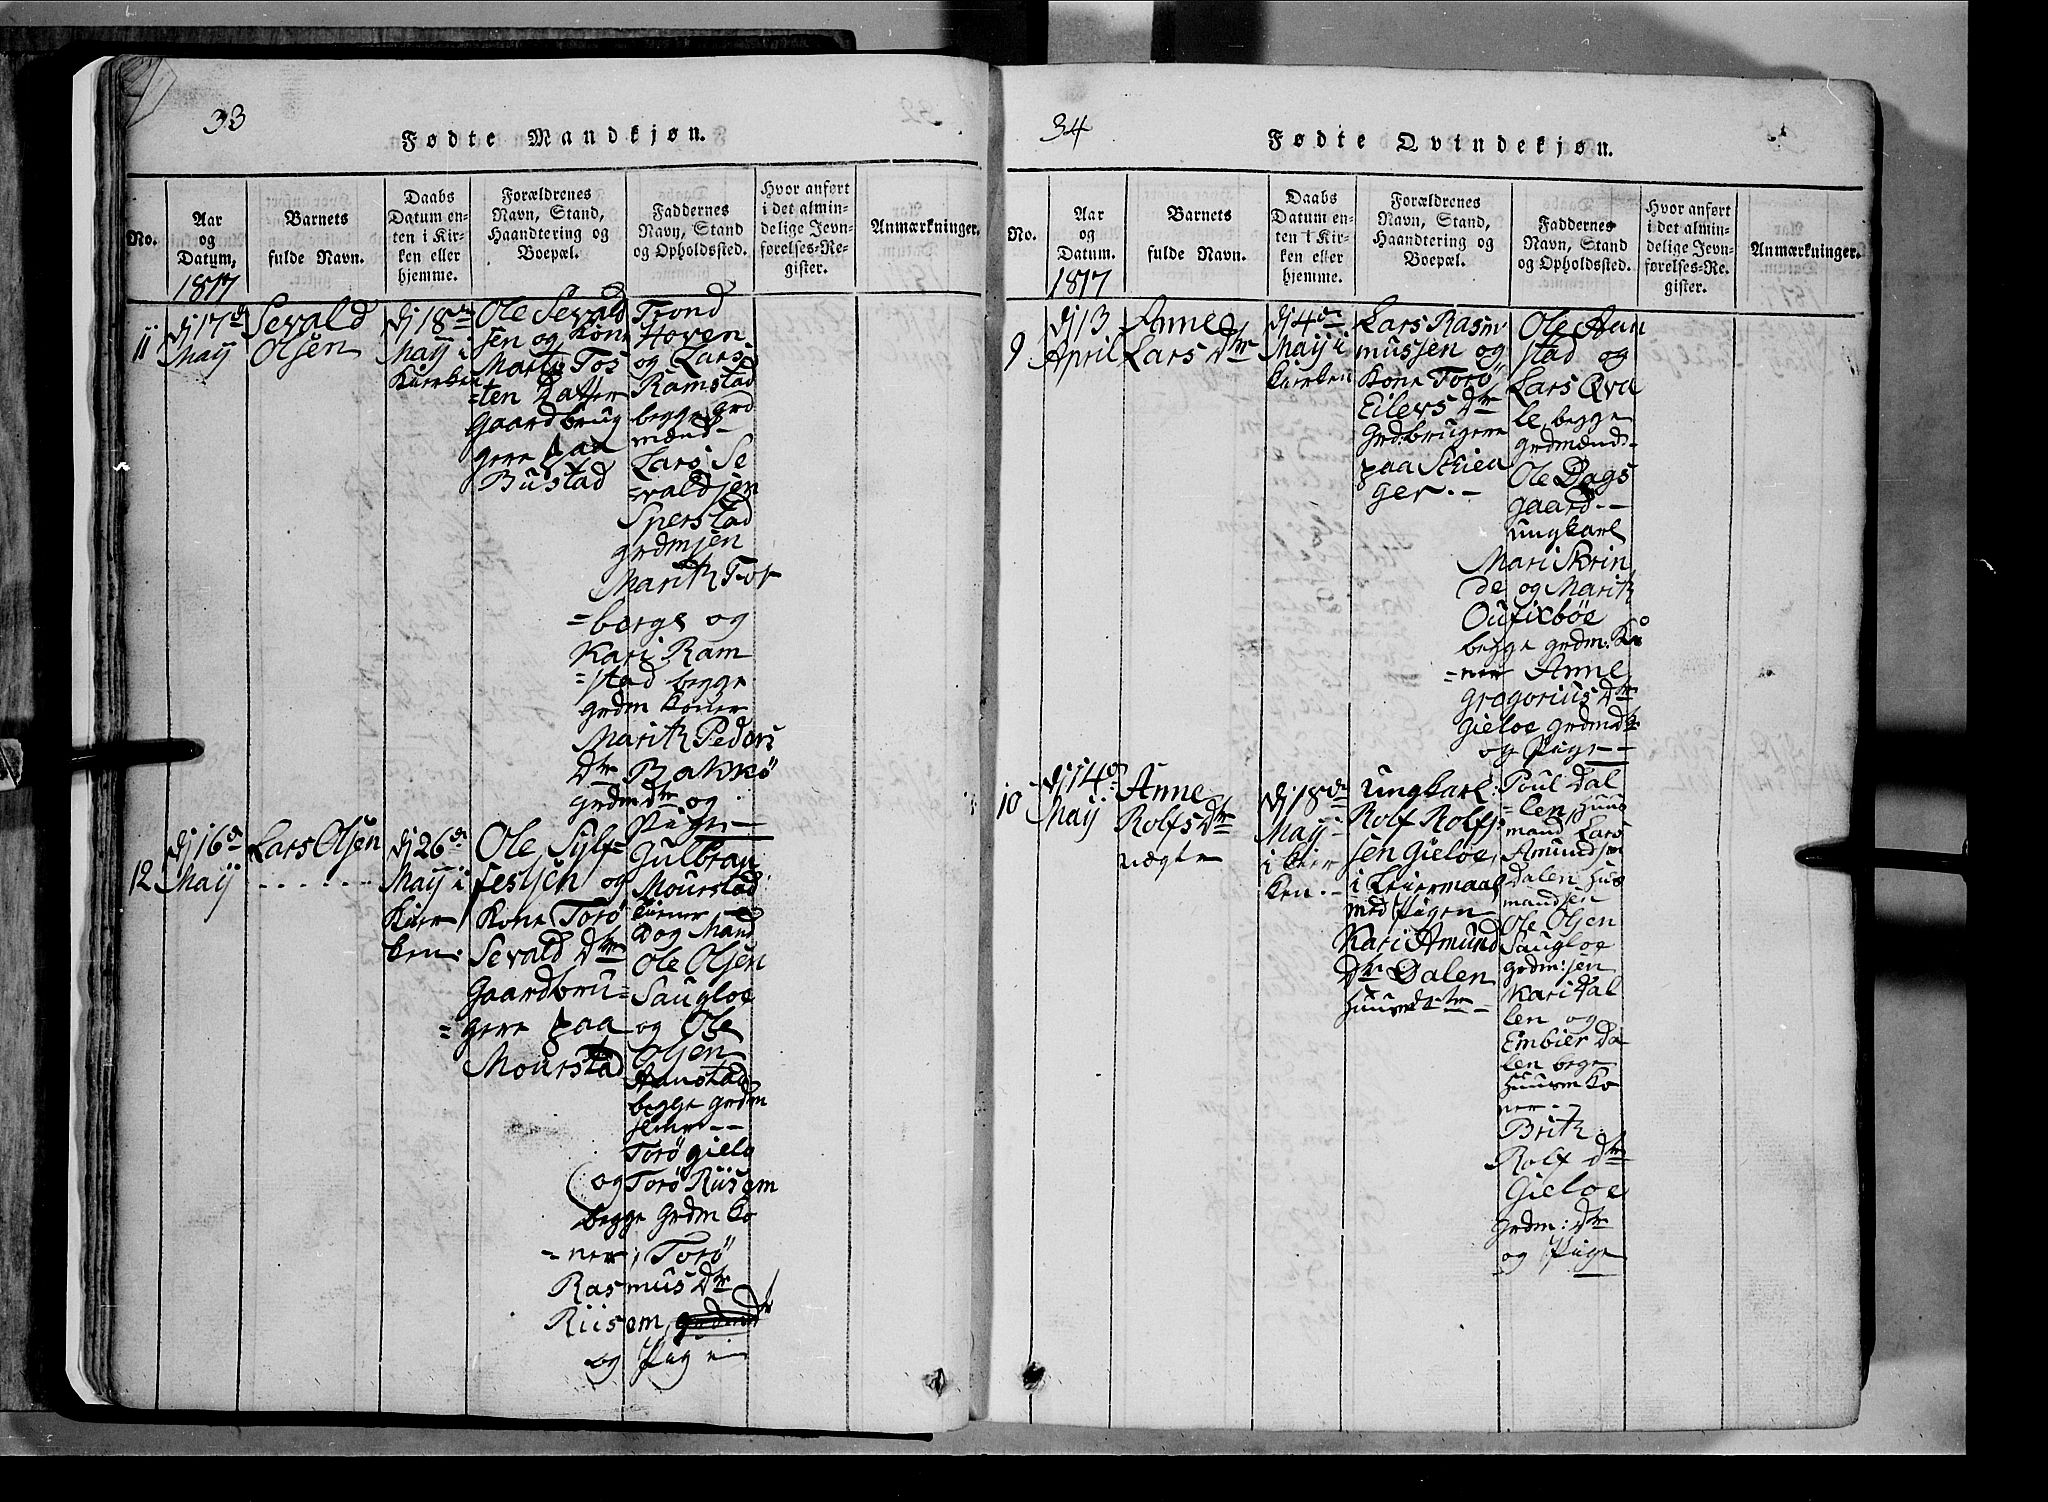 33
Fødte Mandkjøn.
No.
Aar
og
Datum,
1817
Barnets
fulde Navn.
Daabs
Datum en-
ten i Kir-
ken eller
hjemme.
Forældrenes
Navn, Stand,
Haandtering og
Boepæl.
Faddernes
Navn, Stand
og Opholdssted.
Hvor anført
i det almin-
delige Jevn-
førelses-Re-
gister.
Anmærkninger.
11
Dj 17d
Maij
Sevald
Olsen
Dj 18de
Maij i
Kierken
Ole Sevald
sen og Kone
Marit Tos
=ten Datter
Gaardbrug
gere paa
Bustad
Trond
Hoven
og Lars
Ramstad
begge Grd
mænd -
Lars Se
=valdsen
Sperstad
grdmsen
Marith Tor
=bergs og
Kari Ram
=stad begge
grdm koner
Marith Peders
Dtr Bakkö
grdm dtr og
Pige -
12
Dj 16d
Maij
Lars Olsen
Dj 26d
Maij i
Kier
ken.
Ole Sylf
festsen og
Kone Torö
Sevald Dtr
Gaardbru=
=gere paa
Mourstad
Julbran
Mourstad
Dog Mand
Ole Olsen
Saugloe
og Ole
Olsen
Aaustad
begge grdm
Torö gielo
og Torö Riisem
begge Grdm Ko
=ner, Torö
Rasmus Dtr
Riisem
og Pige -
34
Fødte Qvindekjøn.
No.
Aar
og
Datum.
1817
Barnets
fulde Navn.
Daabs
Datum en-
ten i Kir-
ken eller
hjemme.
Forældrenes
Navn, Stand,
Haandtering og
Boepæl.
Faddernes
Navn, Stand
og Opholdssted.
Hvor anført
i det almin-
delige Jevn-
førelses-Re-
gister.
Anmærkninger.
9
Dj 13
April
Anne
Lars Dtr
Dj 4de
Maij i
Kierken
Lars Rasm
mussen og
Kone Torö
Eilevs Dtr
Grdbrugere
paa Skiea
ger. -
Ole Aau
stad og
Lars Qva
le begge
grdmænd -
Ole Dags
gaard --
ungkarl
Mari Skrin
de og Marith
Oufixböe
begge grdm: Ko
=ner Anne
Gregorius Dtr
Gieloe grdmdtr
og Pige --
10
Dj 14d
Maij
Anne
Rolfs Dtr
uægte
Dj 18de
Maij
i kier
ken. -
Ungkarl:
Rolf Rolf
sen Gieloe,
i Leiermaal
med Pigen
Kari Amund
Dtr Dalen
Huusmdtr -
Poul Dal
=len, Huus
mand Lars
Amundsen
Dalen Hus
mandsen
Ole Olsen
Saugloe
grdm: sen
Kari Dal
len og
Embier Da
len bege
Huusm Ko
ner --
Brith
Rolf Dtr
Gieloe
grdm: Dtr
og Pige